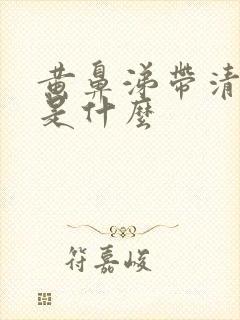 黄鼻涕带清
是什麼
符嘉峻